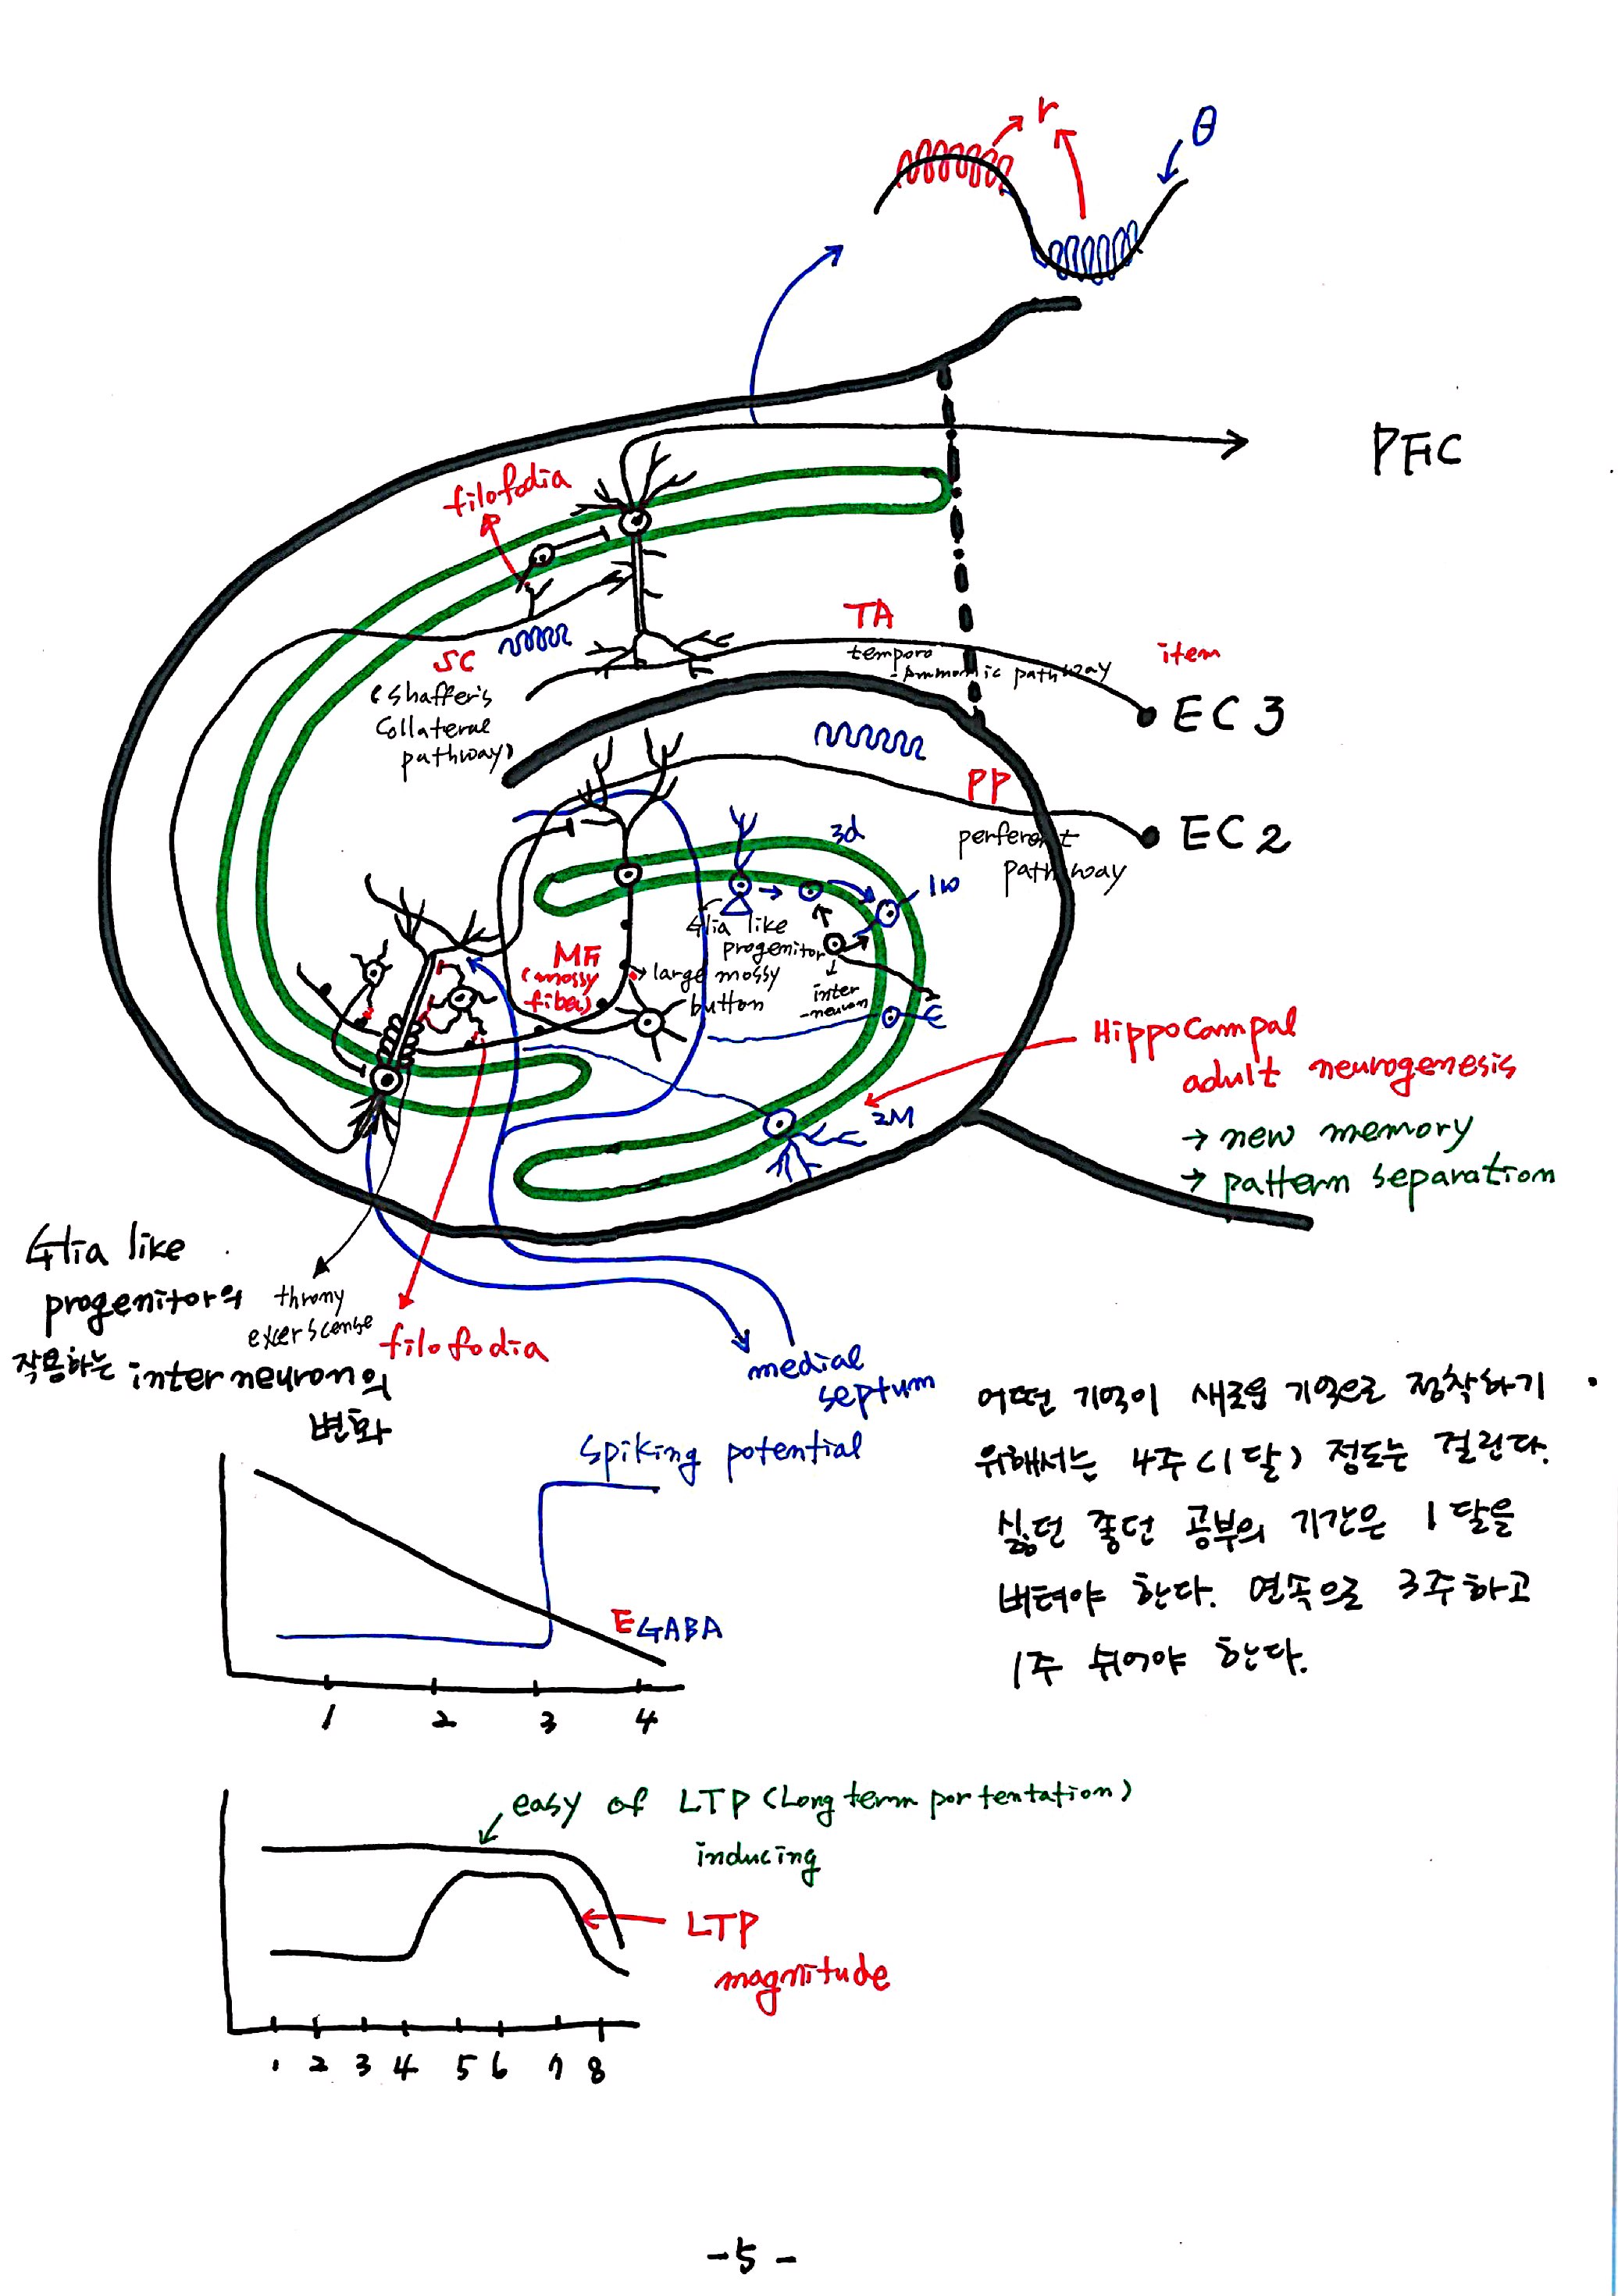 r
θ
PFC
filofodia
TA
temporo
-Ammonic pathway
item
EC 3
SC
(shaffer's
collateral
pathway)
PP
perferent
pathway
EC 2
3d
1w
Glia like
progenitor
inter
-neuron
MF
(mossy
fiber)
large mossy
button
Hippocampal
adult neurogenesis
→ new memory
→ pattern separation
2M
Glia like
progenitor의
작용하는 inter neuron의
변화
throny
exerscense
filofodia
medial
septum
어떤 기억이 새로운 기억으로 정착하기
위해서는 4주(1달) 정도는 걸린다.
싫던 좋던 공부의 기간은 1달을
버텨야 한다. 연속으로 3주하고
1주 쉬어야 한다.
spiking potential
EGABA
1 2 3 4
easy of LTP (Long term portentation)
inducing
LTP
magnitude
1 2 3 4 5 6 7 8
-5-